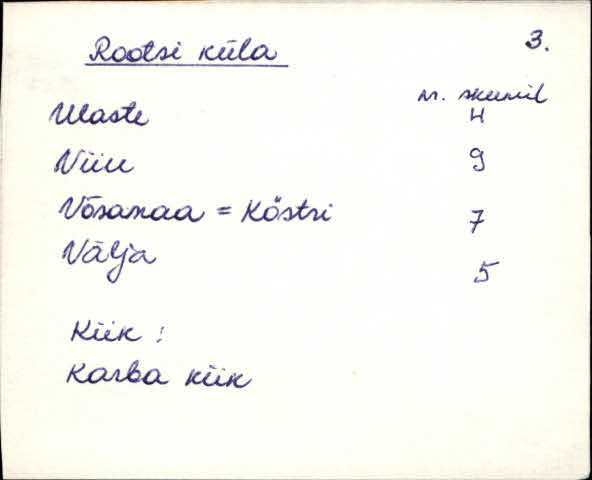 Rootsi küla 3.
nr. skeemil
Ulaste 4
Viiu 9
Võsamaa = Köstri 7
Välja 5
Kiik:
Karba kiik